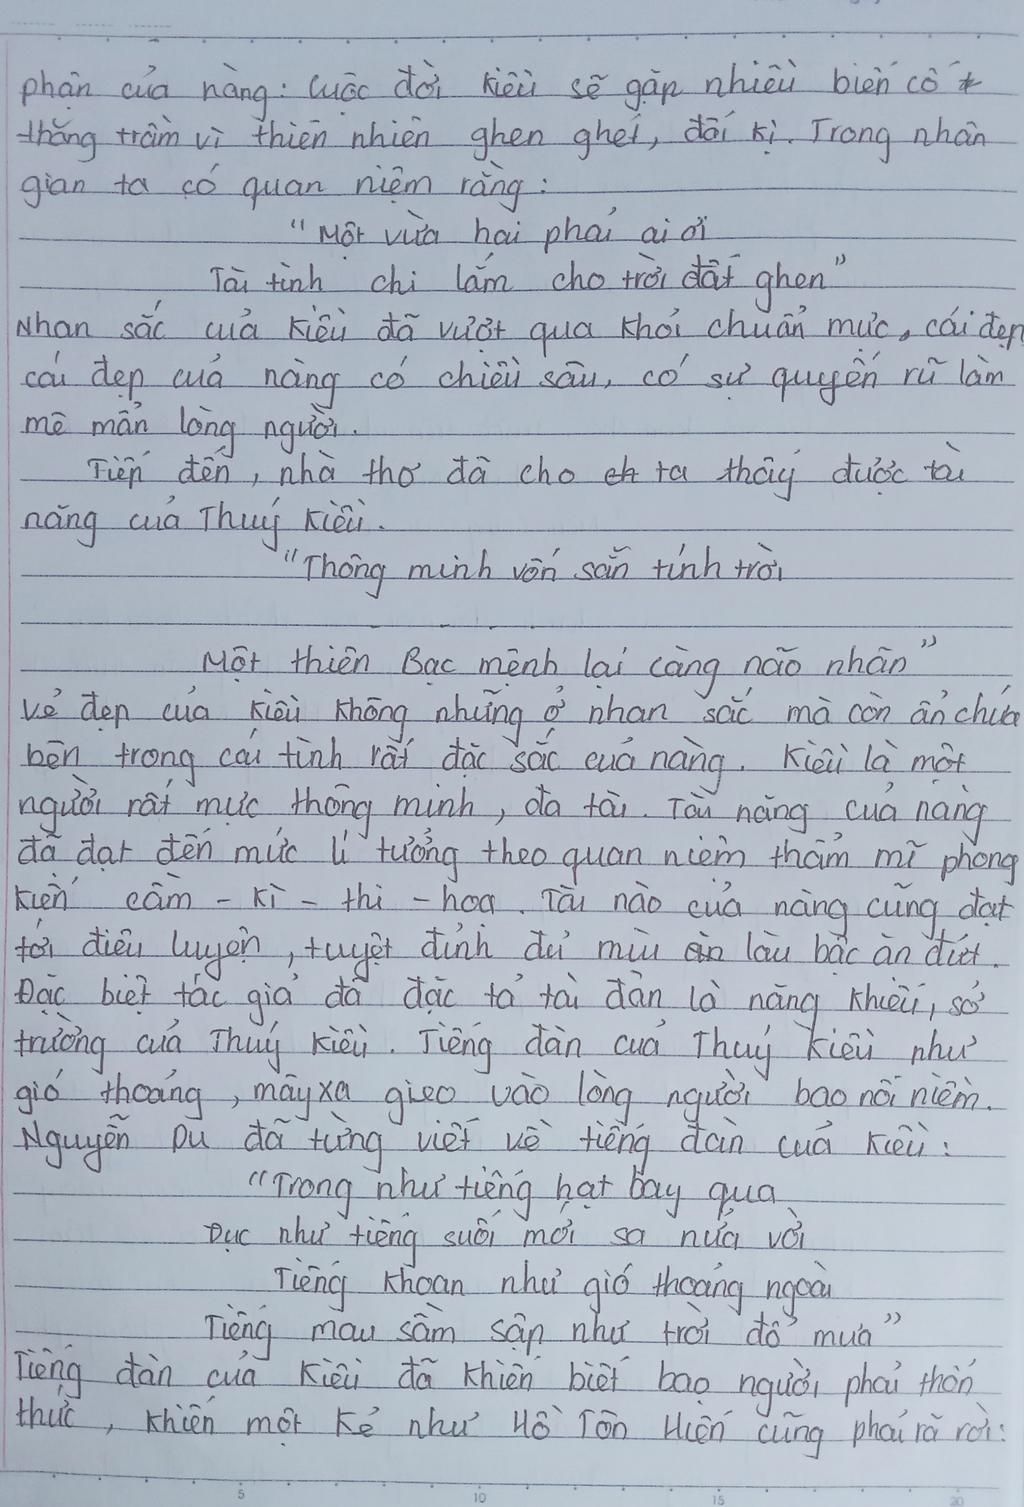 phận của nàng: Cuộc đời Kiều sẽ gặp nhiều biến cố
thăng trầm vì thiên nhiên ghen ghét, đố kị. Trong nhân
gian ta có quan niệm rằng:
"Một vừa hai phải ai ơi
Tài tình chi lắm cho trời đất ghen"
Nhan sắc của Kiều đã vượt qua khỏi chuẩn mực, cái đẹp
cái đẹp của nàng có chiều sâu, có sự quyến rũ làm
mê mẩn lòng người.
Tiếp đến, nhà thơ đã cho ta thấy được tài
năng của Thuý Kiều.
"Thông minh vốn sẵn tính trời
Một thiên Bạc mệnh lại càng não nhân"
Vẻ đẹp của Kiều không những ở nhan sắc mà còn ẩn chứa
bên trong cái tình rất đặc sắc của nàng. Kiều là một
người rất mực thông minh, đa tài. Tài năng của nàng
đã đạt đến mức lí tưởng theo quan niệm thẩm mĩ phong
kiến cầm - kì - thi - hoạ. Tài nào của nàng cũng đạt
tới điêu luyện, tuyệt đỉnh đủ mùi làu bậc ăn đứt.
Đặc biệt tác giả đã đặc tả tài đàn là năng khiếu, sở
trường của Thuý Kiều. Tiếng đàn của Thuý Kiều như
gió thoảng, mây xa gieo vào lòng người bao nỗi niềm.
Nguyễn Du đã từng viết về tiếng đàn của Kiều:
"Trong như tiếng hạt bay qua
Đục như tiếng suối mới sa nửa vời
Tiếng khoan như gió thoảng ngoài
Tiếng mau sầm sập như trời đổ mưa"
Tiếng đàn của Kiều đã khiến biết bao người phải thổn
thức, khiến một kẻ như Hồ Tôn Hiến cũng phải rã rời:
5 10 15 20